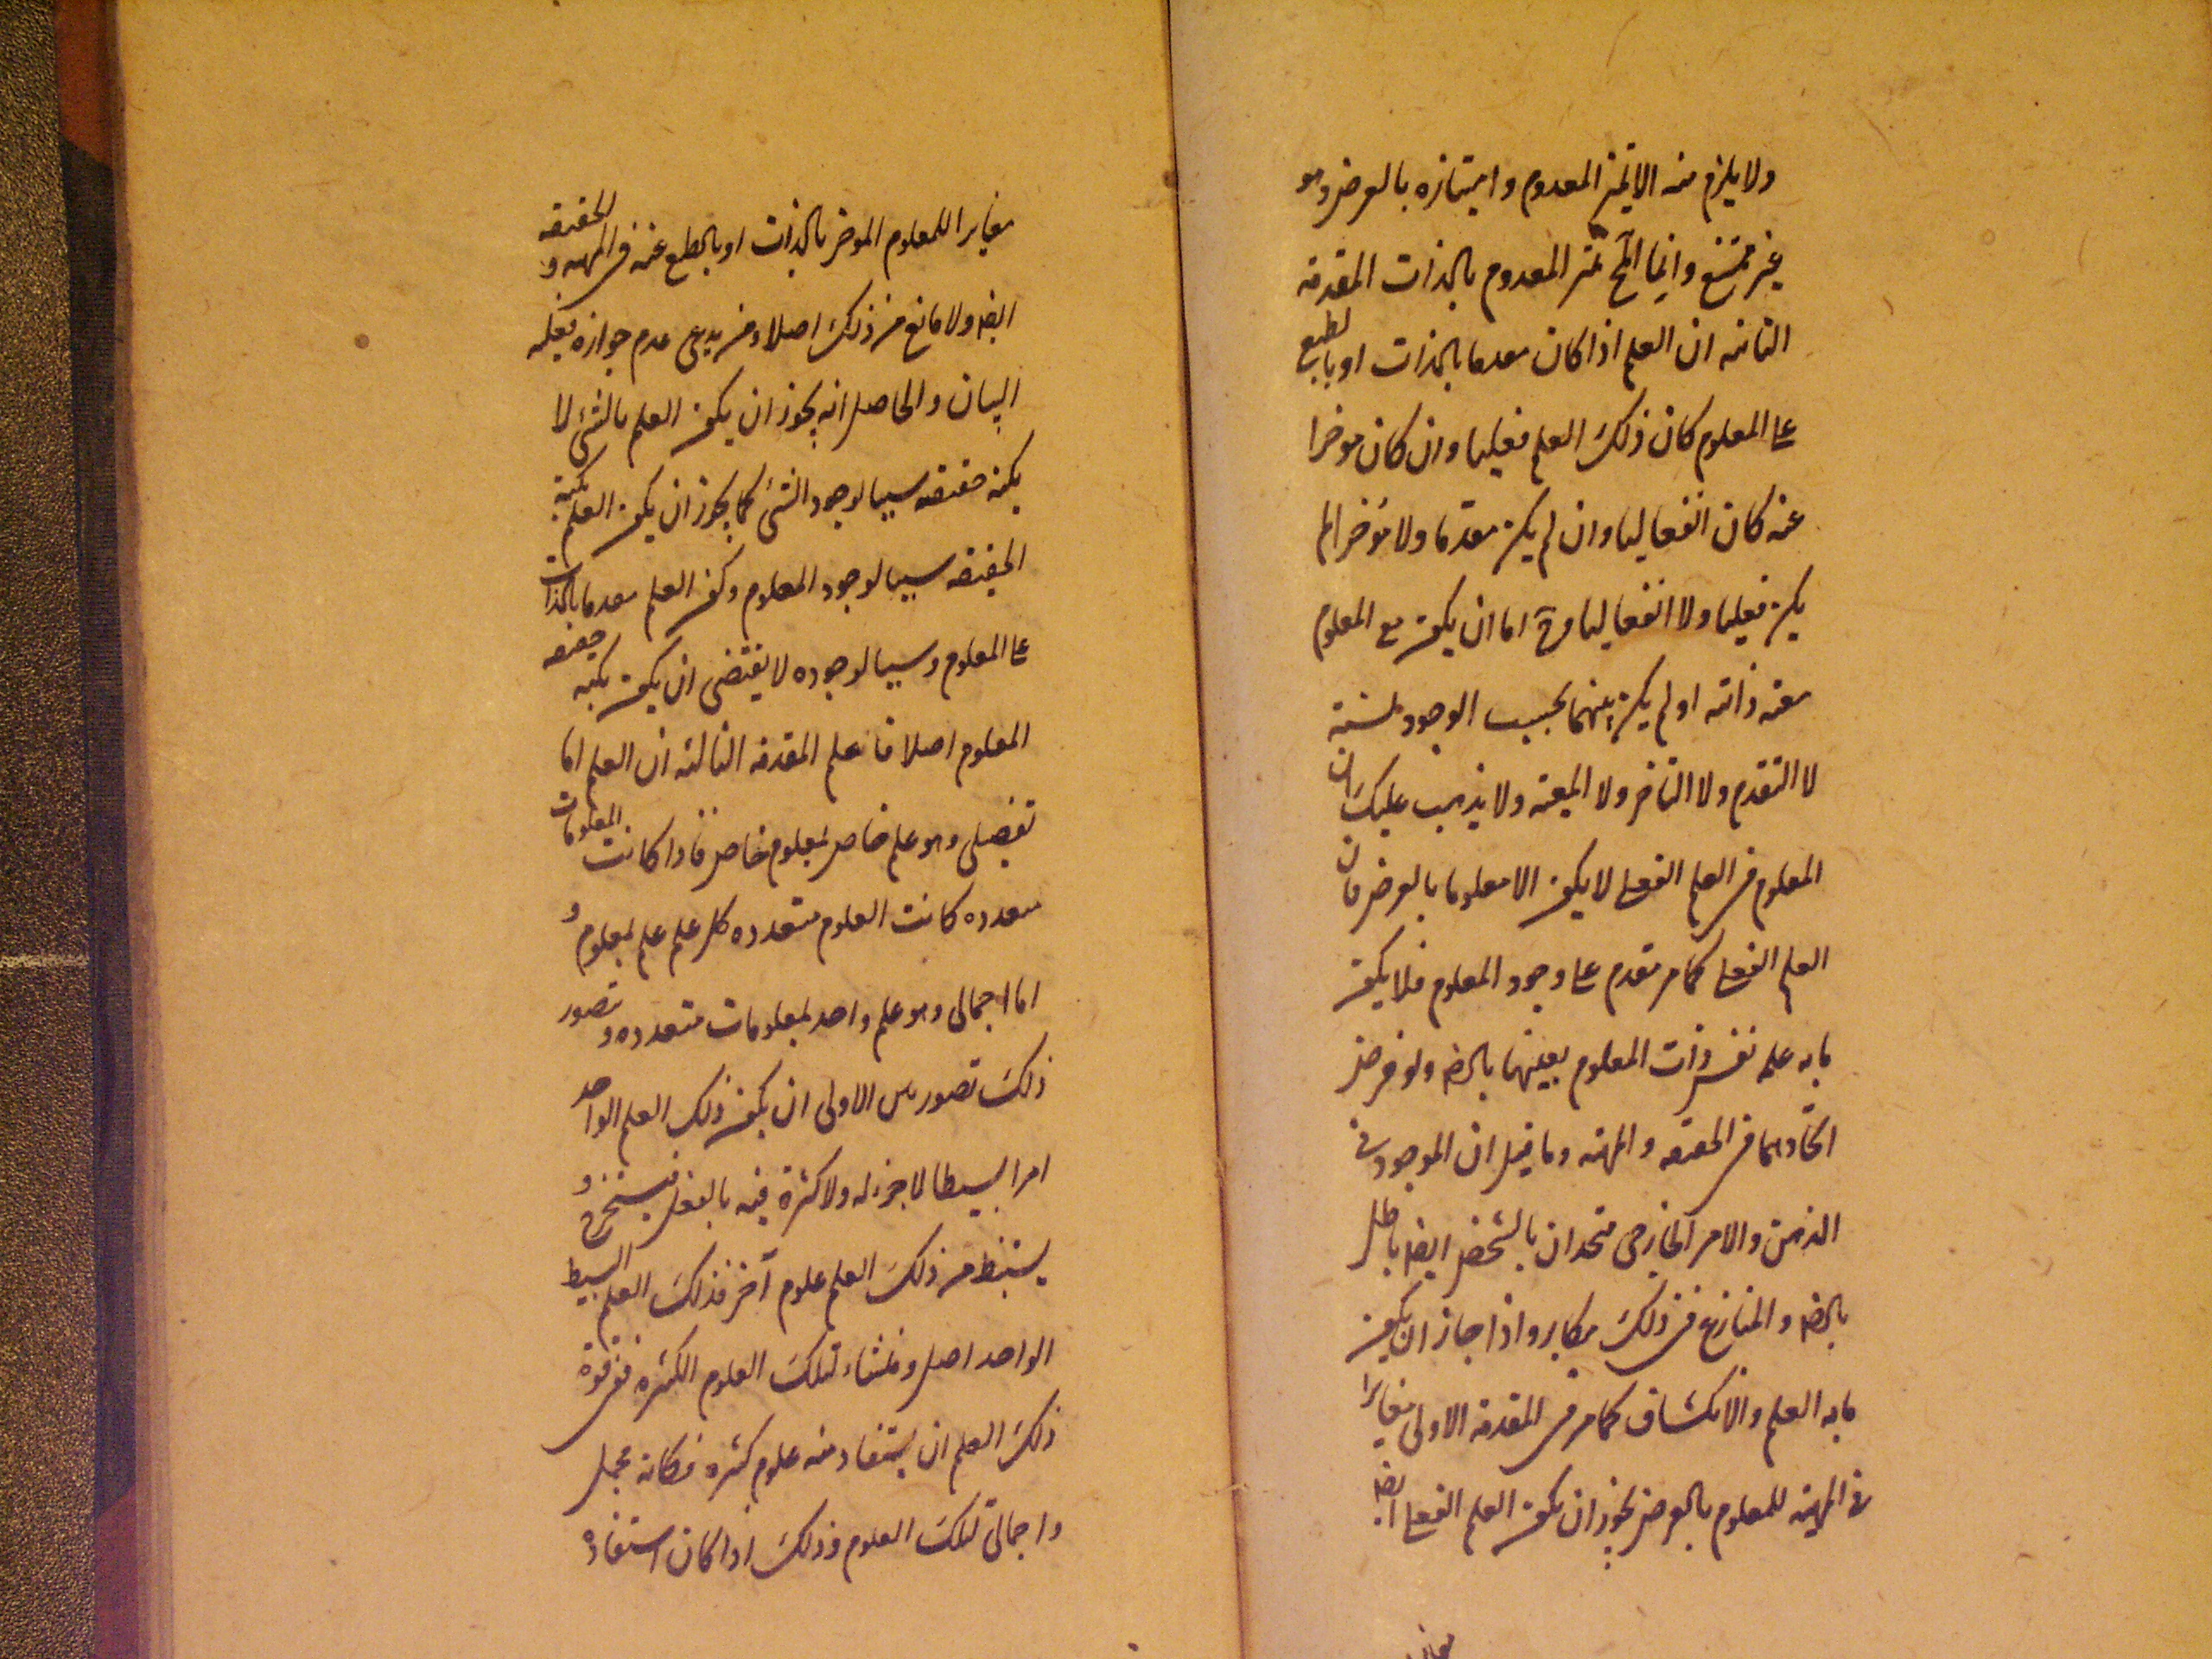 ولا يلزم منه الا تميز المعدوم وامتيازه بالعرض وهو
غير ممتنع وانما المح تميز المعدوم بالذات المقدمة
الثانية ان العلم اذا كان مقدما بالذات او بالطبع
على المعلوم كان ذلك العلم فعليا وان كان موخرا
عنه كان انفعاليا وان لم يكن مقدما ولا موخرا لم
يكن فعليا ولا انفعاليا وح اما ان يكون مع المعلوم
معية ذاتية او لم يكن بينهما بحسب الوجود نسبة
لا التقدم ولا التاخر ولا المعية ولا يذهب عليك ان
المعلوم في العلم الفعلي لا يكون الا معلوما بالعرض فان
العلم الفعلي كما مر مقدم على وجود المعلوم فلا يكون
ما به علم نفس ذات المعلوم بعينها بالضه ولو فرض
اتحادهما في الحقيقة والمهية وما قيل ان الموجود في
الذهن والامر الخارجي متحدان بالشخص ايضه باطل
بالضه والمنازع في ذلك مكابر واذا جاز ان يكون
ما به العلم والانكشاف كما مر في المقدمة الاولى مغايرا
في المهية للمعلوم بالعرض يجوز ان يكون العلم الفعلي ايضه
مغايرا للمعلوم الموخر بالذات او بالطبع عنه في المهية و الحقيقة
ايضه ولا مانع من ذلك اصلا ومن يدعي عدم جوازه فعليه
البيان والحاصل انه يجوز ان يكون العلم بالشئ لا
بكنه حقيقته سببا لوجود الشئ كما يجوز ان يكون العلم بكنه
الحقيقة سببا لوجود المعلوم وكون العلم مقدما بالذات
على المعلوم وسببا لوجوده لا يقتضى ان يكون بكنه حقيقة
المعلوم اصلا فاعلم المقدمة الثالثة ان العلم اما
تفصيلى وهو علم خاص لمعلوم خاص فاذا كانت المعلومات
متعددة كانت العلوم متعددة كل علم علم لمعلوم و
اما اجمالى وهو علم واحد لمعلومات متعددة و تصور
ذلك تصورين الاولى ان يكون ذلك العلم الواحد
امرا بسيطا لا جزء له ولا كثرة فيه بالفعل فيستخرج و
يستنبط من ذلك العلم علوم آخر فذلك العلم البسيط
الواحد اصل ومنشاء لتلك العلوم الكثيرة ففي قوة
ذلك العلم ان يستفاد منه علوم كثيرة فكانه مجمل
واجمالى لتلك العلوم وذلك اذا كان استفادة